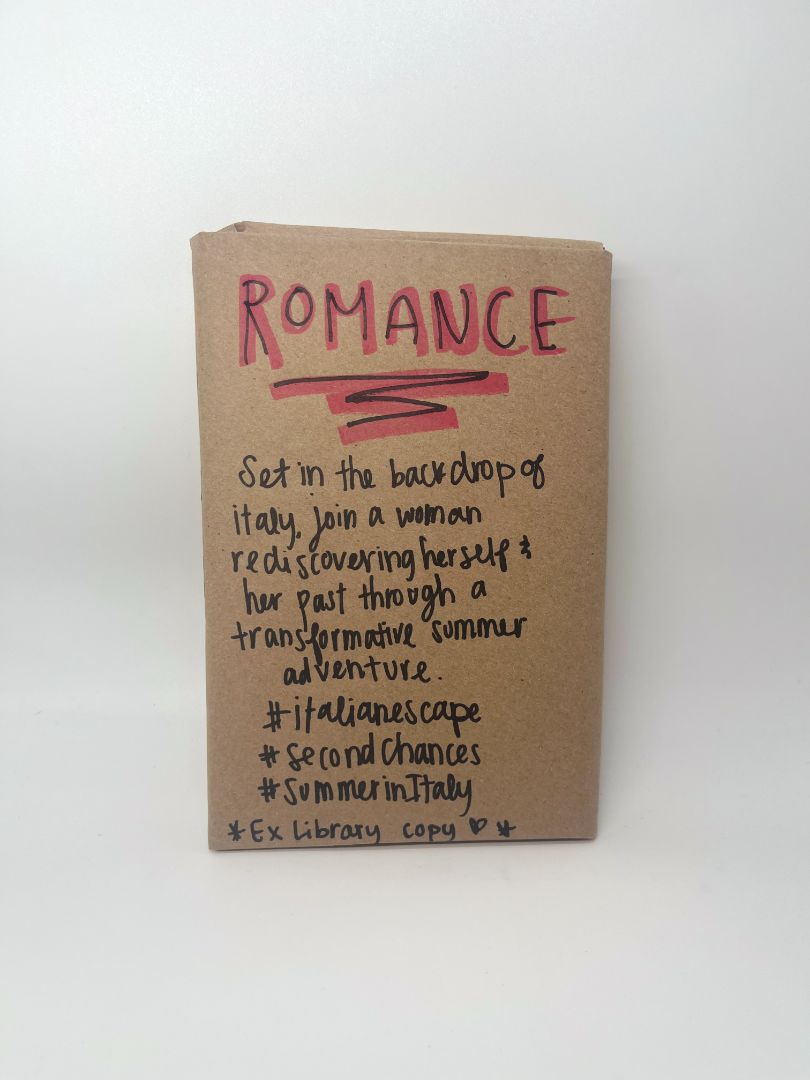 ROMANCE
Set in the backdrop of
italy, join a woman
rediscovering herself &
her past through a
transformative summer
adventure.
#italianescape
#secondchances
#SummerinItaly
*Ex Library copy ♡ *